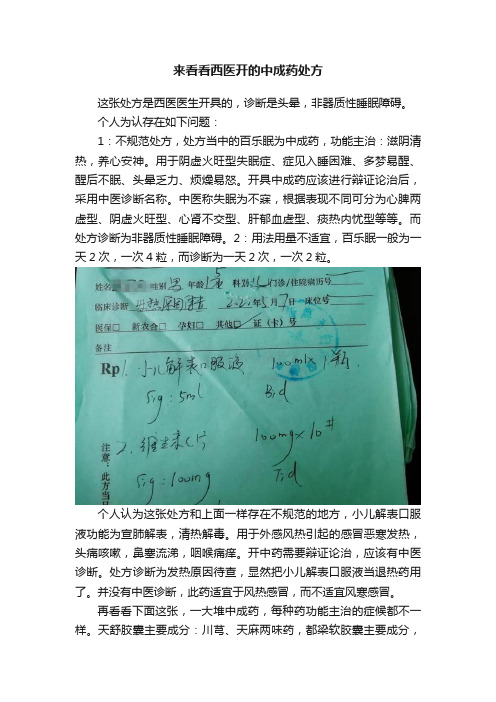 来看看西医开的中成药处方
这张处方是西医医生开具的，诊断是头晕，非器质性睡眠障碍。
个人为认存在如下问题：
1：不规范处方，处方当中的百乐眠为中成药，功能主治：滋阴清
热，养心安神。用于阴虚火旺型失眠症、症见入睡困难、多梦易醒、
醒后不眠、头晕乏力、烦燥易怒。开具中成药应该进行辩证论治后，
采用中医诊断名称。中医称失眠为不寐，根据表现不同可分为心脾两
虚型、阴虚火旺型、心肾不交型、肝郁血虚型、痰热内忧型等等。而
处方诊断为非器质性睡眠障碍。2：用法用量不适宜，百乐眠一般为一
天2次，一次4粒，而诊断为一天2次，一次2粒。
姓名 性别 男 年龄 5 科别 儿 门诊/住院病历号
临床诊断 发热原因待查 年5月7日 床位号
医保□ 新农合□ 孕妇□ 其他□ 证（卡）号
备注
Rp 1. 小儿解表口服液 100ml×1瓶
Sig: 5ml Bid
2. 维生素C片 100mg×10#
Sig: 100mg Tid
注意：此方当日
个人认为这张处方和上面一样存在不规范的地方，小儿解表口服
液功能为宣肺解表，清热解毒。用于外感风热引起的感冒恶寒发热，
头痛咳嗽，鼻塞流涕，咽喉痛痒。开中药需要辩证论治，应该有中医
诊断。处方诊断为发热原因待查，显然把小儿解表口服液当退热药用
了。并没有中医诊断，此药适宜于风热感冒，而不适宜风寒感冒。
再看看下面这张，一大堆中成药，每种药功能主治的症候都不一
样。天舒胶囊主要成分：川芎、天麻两味药，都梁软胶囊主要成分，